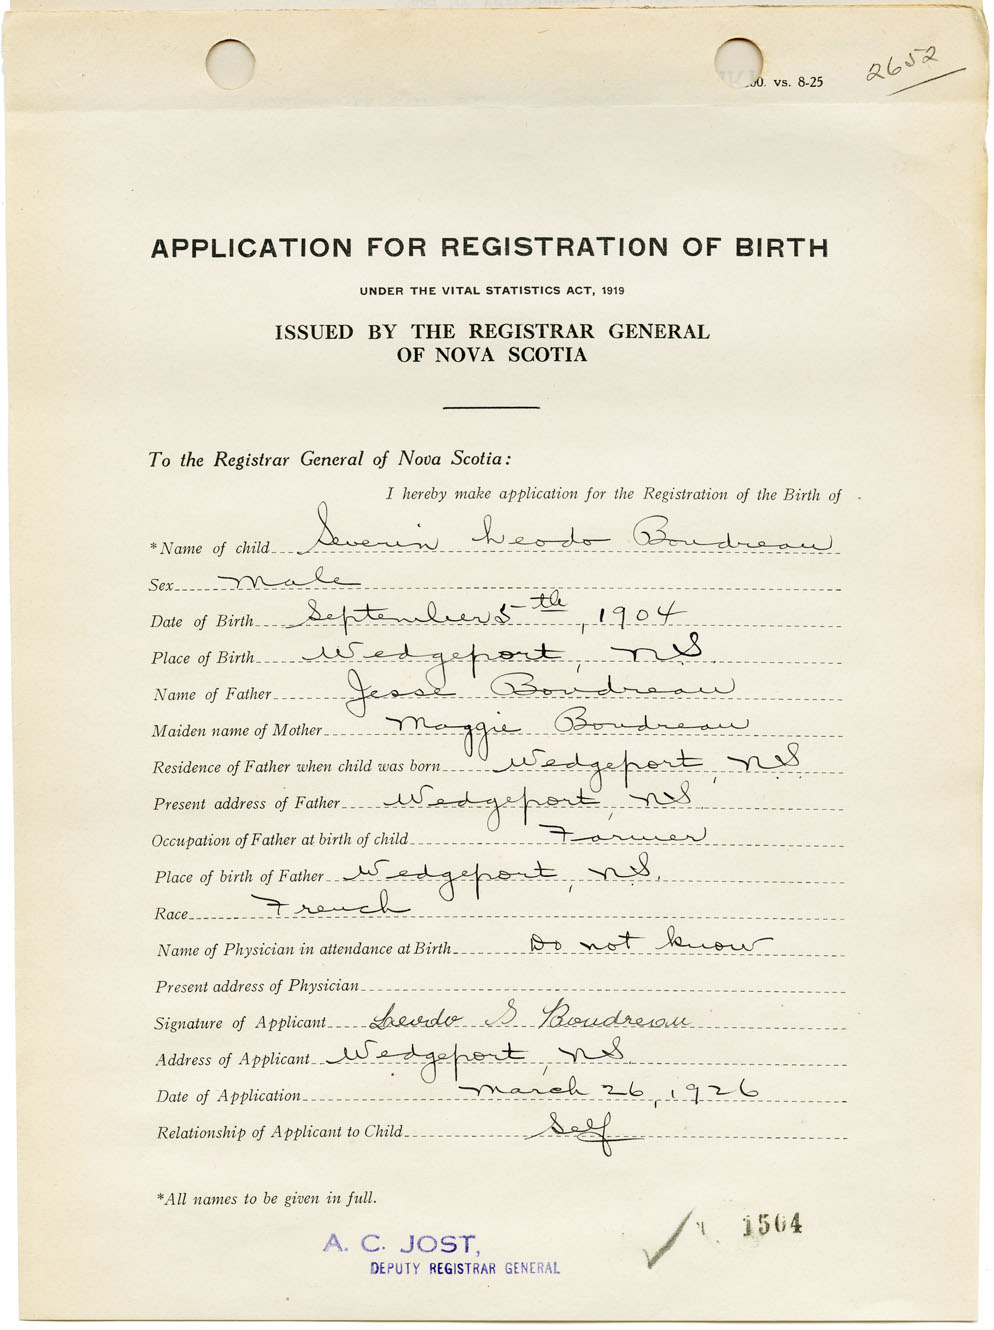 2652
00. vs. 8-25
APPLICATION FOR REGISTRATION OF BIRTH
UNDER THE VITAL STATISTICS ACT, 1919
ISSUED BY THE REGISTRAR GENERAL
OF NOVA SCOTIA
To the Registrar General of Nova Scotia:
I hereby make application for the Registration of the Birth of
*Name of child Severin Leodo Boudreau
Sex Male
Date of Birth September 5th, 1904
Place of Birth Wedgeport, N.S.
Name of Father Jesse Boudreau
Maiden name of Mother Maggie Boudreau
Residence of Father when child was born Wedgeport, N.S.
Present address of Father Wedgeport, N.S.
Occupation of Father at birth of child Farmer
Place of birth of Father Wedgeport, N.S.
Race French
Name of Physician in attendance at Birth Do not know
Present address of Physician
Signature of Applicant Leodo S Boudreau
Address of Applicant Wedgeport, N.S.
Date of Application March 26, 1926
Relationship of Applicant to Child Self
*All names to be given in full.
1504
A. C. JOST,
DEPUTY REGISTRAR GENERAL